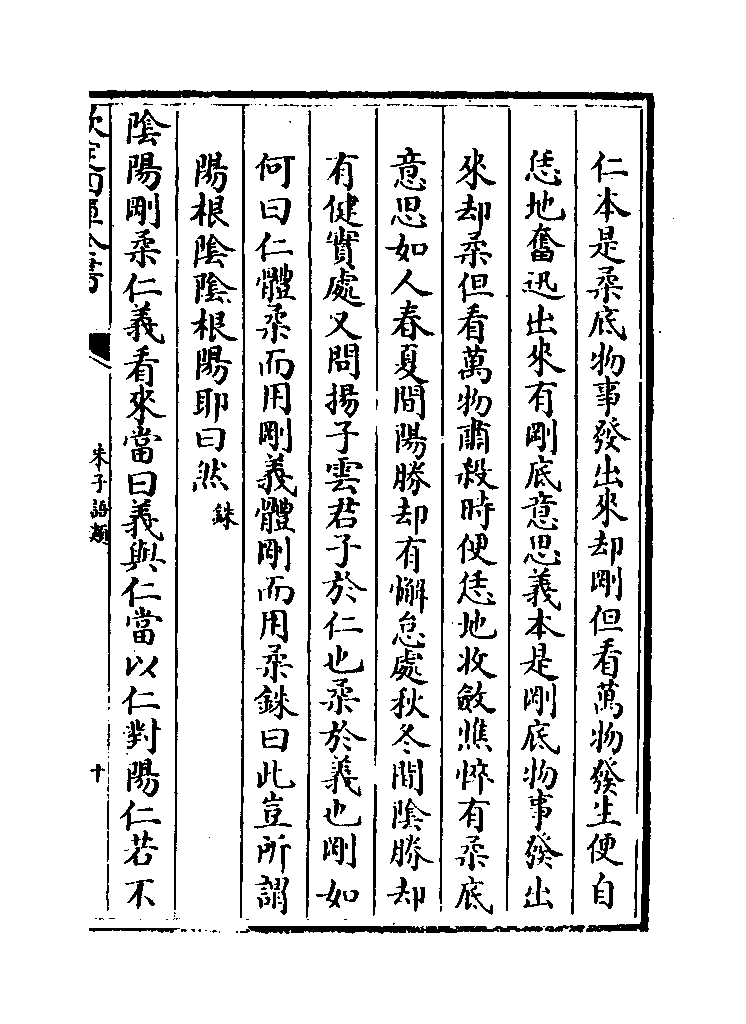 仁本是柔底物事發出來却剛但看萬物發生便自
恁地奮迅出來有剛底意思義本是剛底物事發出
來却柔但看萬物肅殺時便恁地收斂憔悴有柔底
意思如人春夏間陽勝却有懈怠處秋冬間陰勝却
有健實處又問揚子雲君子於仁也柔於義也剛如
何曰仁體柔而用剛義體剛而用柔銖曰此豈所謂
陽根陰陰根陽耶曰然銖
陰陽剛柔仁義看來當曰義與仁當以仁對陽仁若不
欽定四庫全書
朱子語類
十